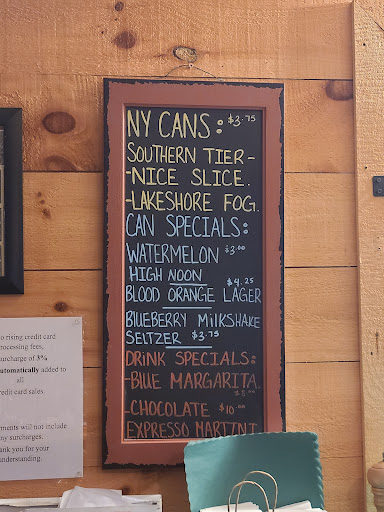 NY CANS: $3.75
SOUTHERN TIER-
-NICE SLICE.
-LAKESHORE FOG.
CAN SPECIALS:
WATERMELON $3.00
HIGH NOON
$4.25
BLOOD ORANGE LAGER
BLUEBERRY MILKSHAKE
SELTZER $3.75
DRINK SPECIALS:
-BLUE MARGARITA.
-CHOCOLATE $10.00
EXPRESSO MARTINI
o rising credit card
rocessing fees,
surcharge of 3%
automatically added to
all
redit card sales.
ments will not include
ny surcharges.
ank you for your
nderstanding.